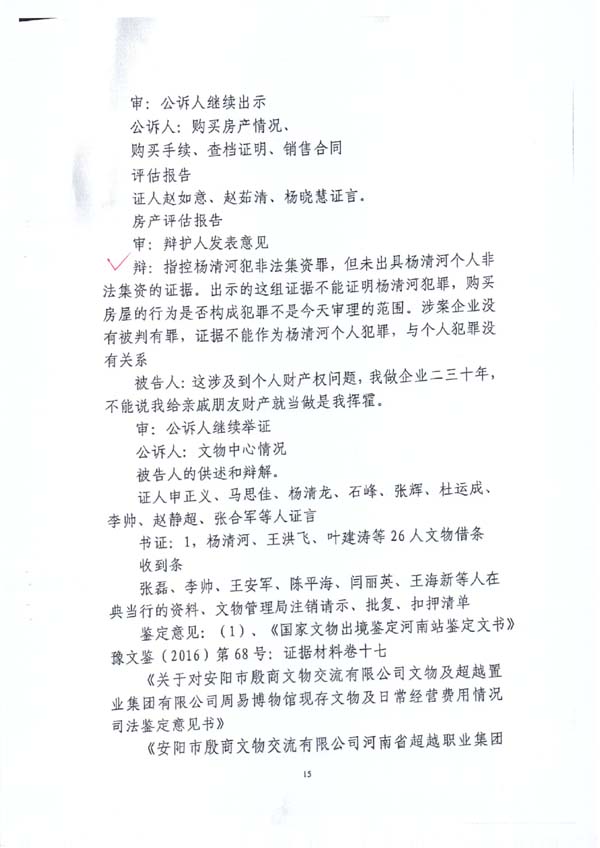 审：公诉人继续出示
公诉人：购买房产情况、
购买手续、查档证明、销售合同
评估报告
证人赵如意、赵茹清、杨晓慧证言。
房产评估报告
审：辩护人发表意见
辩：指控杨清河犯非法集资罪，但未出具杨清河个人非
法集资的证据。出示的这组证据不能证明杨清河犯罪，购买
房屋的行为是否构成犯罪不是今天审理的范围。涉案企业没
有被判有罪，证据不能作为杨清河个人犯罪，与个人犯罪没
有关系
被告人：这涉及到个人财产权问题，我做企业二三十年，
不能说我给亲戚朋友财产就当做是我挥霍。
审：公诉人继续举证
公诉人：文物中心情况
被告人的供述和辩解。
证人申正义、马思佳、杨清龙、石峰、张辉、杜运成、
李帅、赵静超、张合军等人证言
书证：1，杨清河、王洪飞、叶建涛等26人文物借条
收到条
张磊、李帅、王安军、陈平海、闫丽英、王海新等人在
典当行的资料、文物管理局注销请示、批复、扣押清单
鉴定意见：（1）、《国家文物出境鉴定河南站鉴定文书》
豫文鉴（2016）第68号；证据材料卷十七
《关于对安阳市殷商文物交流有限公司文物及超越置
业集团有限公司周易博物馆现存文物及日常经营费用情况
司法鉴定意见书》
《安阳市殷商文物交流有限公司河南省超越职业集团
15